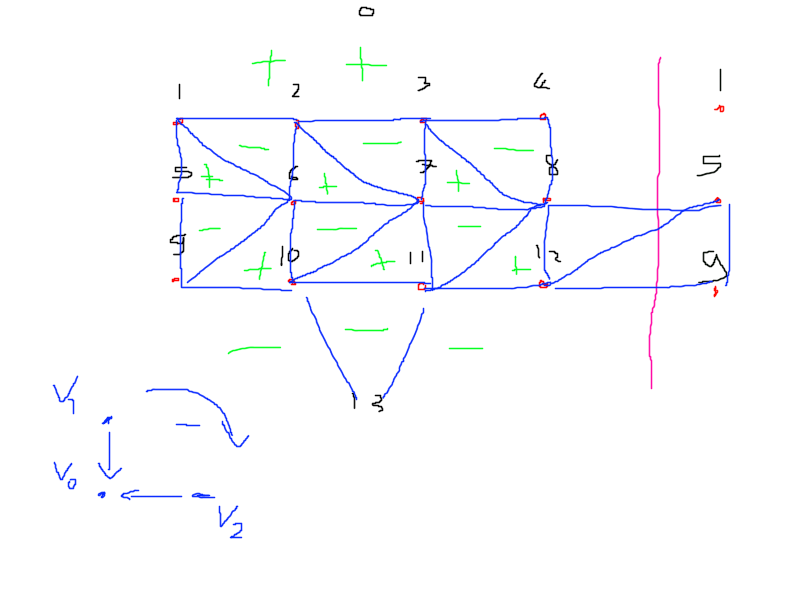 0
+ +
1 2 3 4 1
− − −
5 6 7 8 5
+ + +
− − −
9 10 11 12 9
+ + +
− − −
13
V1
−
V0
V2